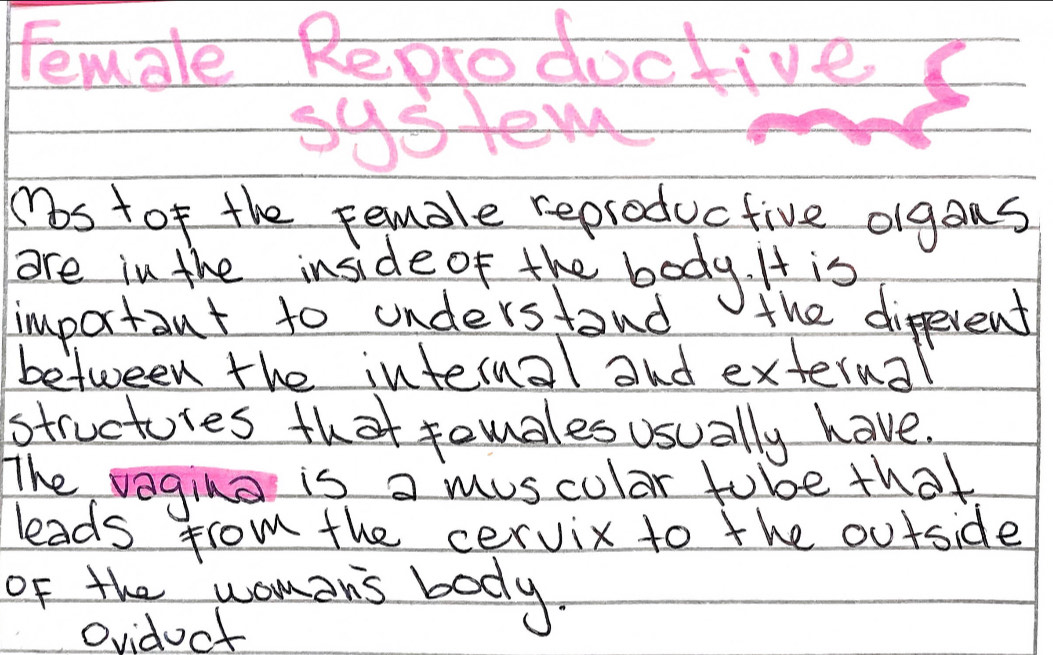 Female Reproductive
system
Most of the female reproductive organs
are in the inside of the body. It is
important to understand the different
between the internal and external
structures that females usually have.
The vagina is a muscular tube that
leads from the cervix to the outside
of the woman's body.
Oviduct